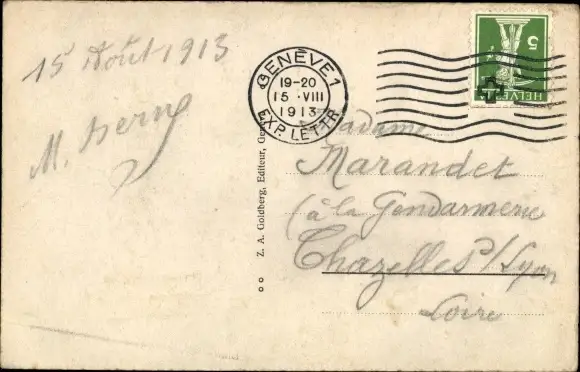 15 Août 1913
GENÈVE 1
19-20
15 · VIII
1913
EXP. LETTR.
5
HELVE
Z. A. Goldberg, Editeur, Gen
Madame
Marandet
(à la Gendarmerie
Chazelles s/Lyon
Loire